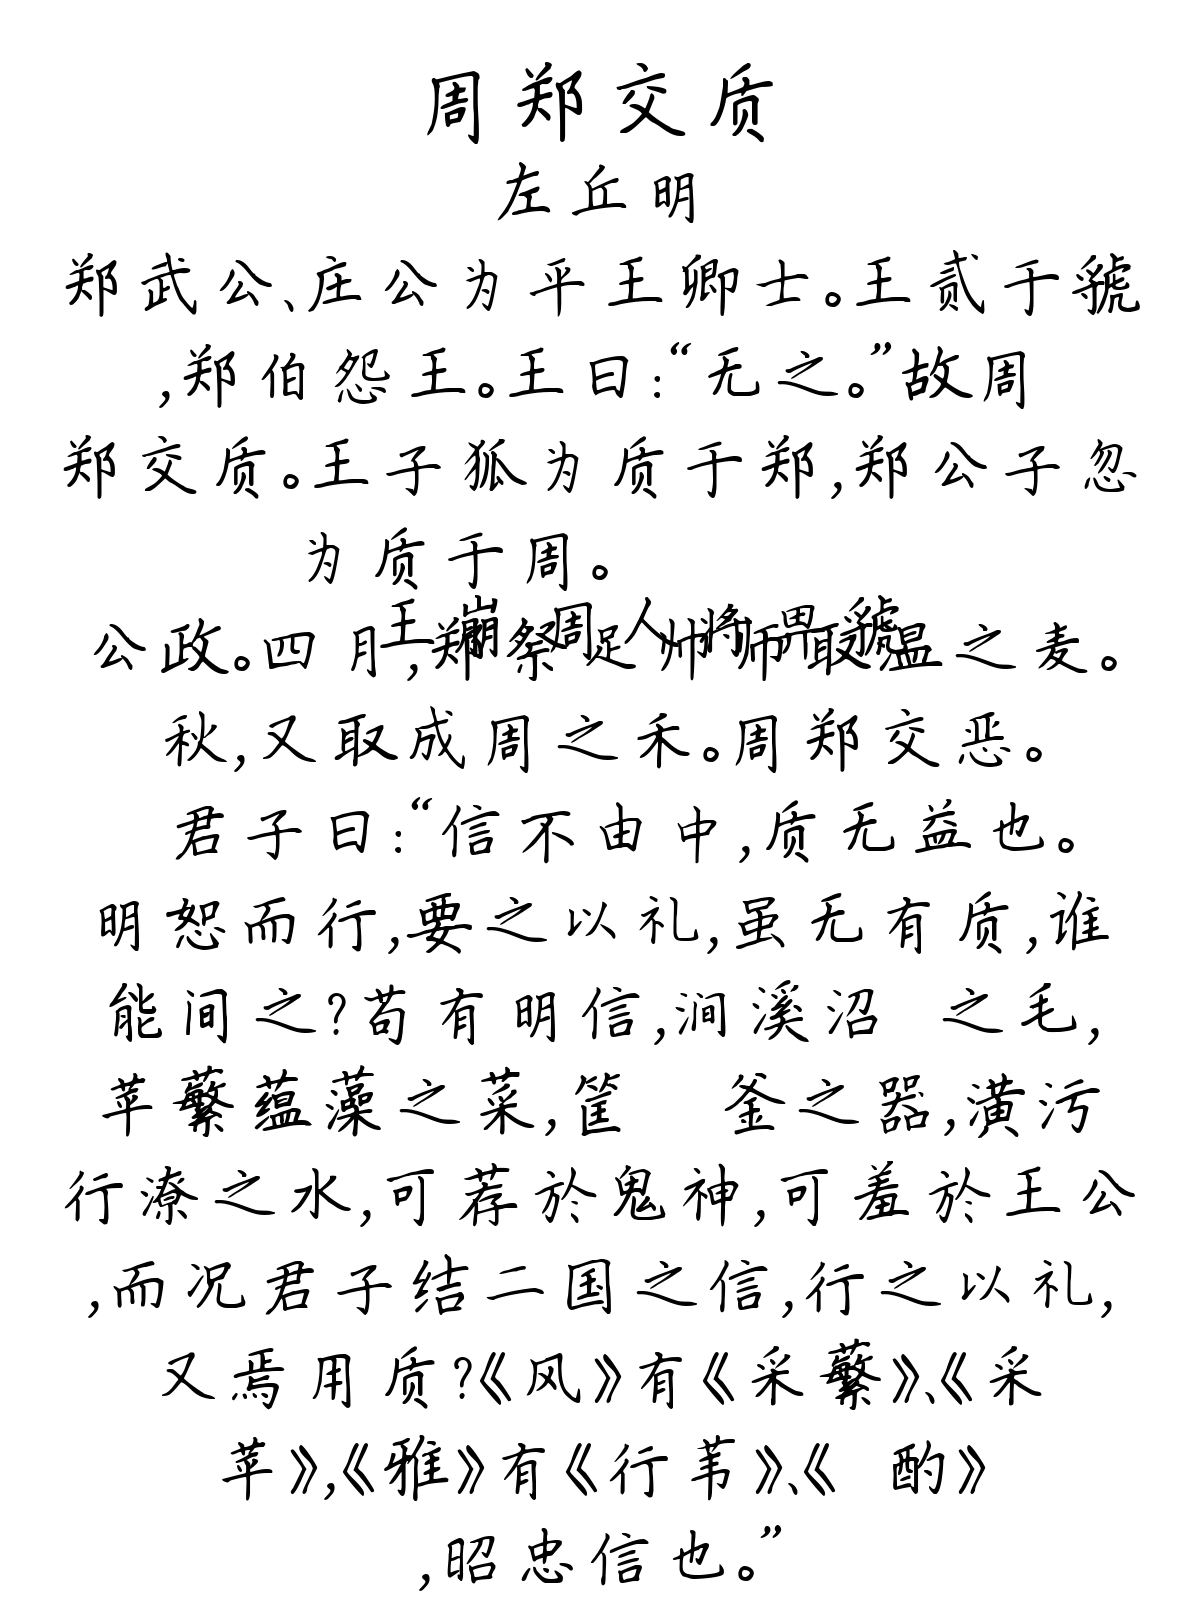 周郑交质
左丘明
郑武公、庄公为平王卿士。王贰于虢
,郑伯怨王。王曰:“无之。”故周
郑交质。王子狐为质于郑,郑公子忽
为质于周。
王崩周人将畀虢
公政。四月,郑祭足帅师取温之麦。
秋,又取成周之禾。周郑交恶。
君子曰:“信不由中,质无益也。
明恕而行,要之以礼,虽无有质,谁
能间之?苟有明信,涧溪沼 之毛,
苹蘩蕴藻之菜,筐 釜之器,潢污
行潦之水,可荐於鬼神,可羞於王公
,而况君子结二国之信,行之以礼,
又焉用质?《风》有《采蘩》、《采
苹》,《雅》有《行苇》、《 酌》
,昭忠信也。”